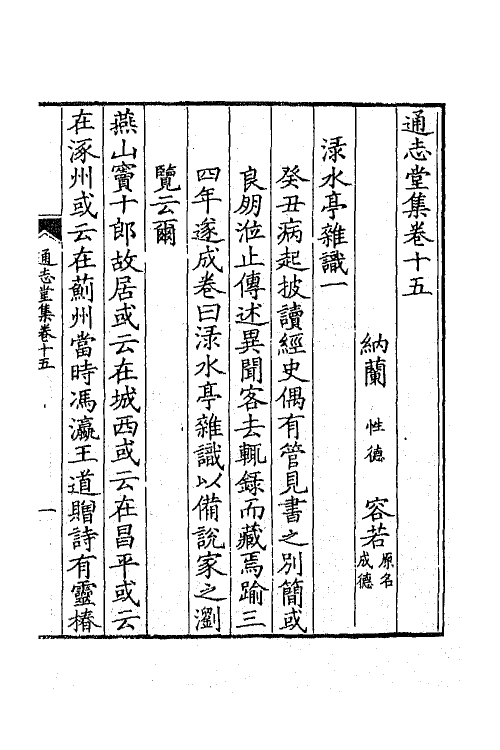 通志堂集卷十五
納蘭 性德 容若 原名成德
淥水亭雜識一
癸丑病起披讀經史偶有管見書之別簡或
良朋涖止傳述異聞客去輒録而藏焉踰三
四年遂成卷曰淥水亭雜識以備說家之瀏
覽云爾
燕山竇十郎故居或云在城西或云在昌平或云
在涿州或云在薊州當時馮瀛王道贈詩有靈椿
通志堂集卷十五
一